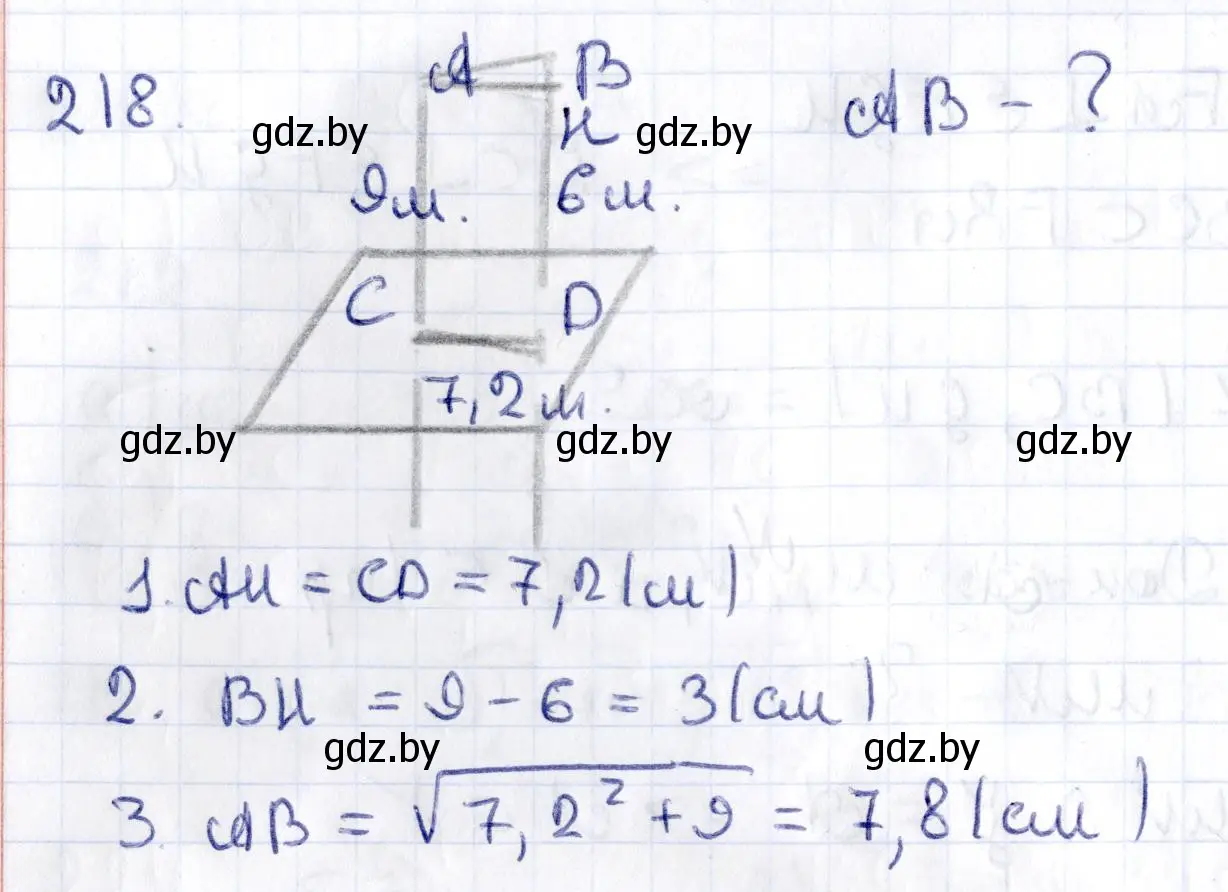 218.
A B
AB - ?
gdz.by
H
gdz.by
9м.
6м.
C
D
7,2м.
gdz.by
gdz.by
gdz.by
1. AH = CD = 7,2(м)
2. BH = 9 - 6 = 3(см)
gdz.by
gdz.by
3. AB = √7,2² + 9 = 7,8(см)